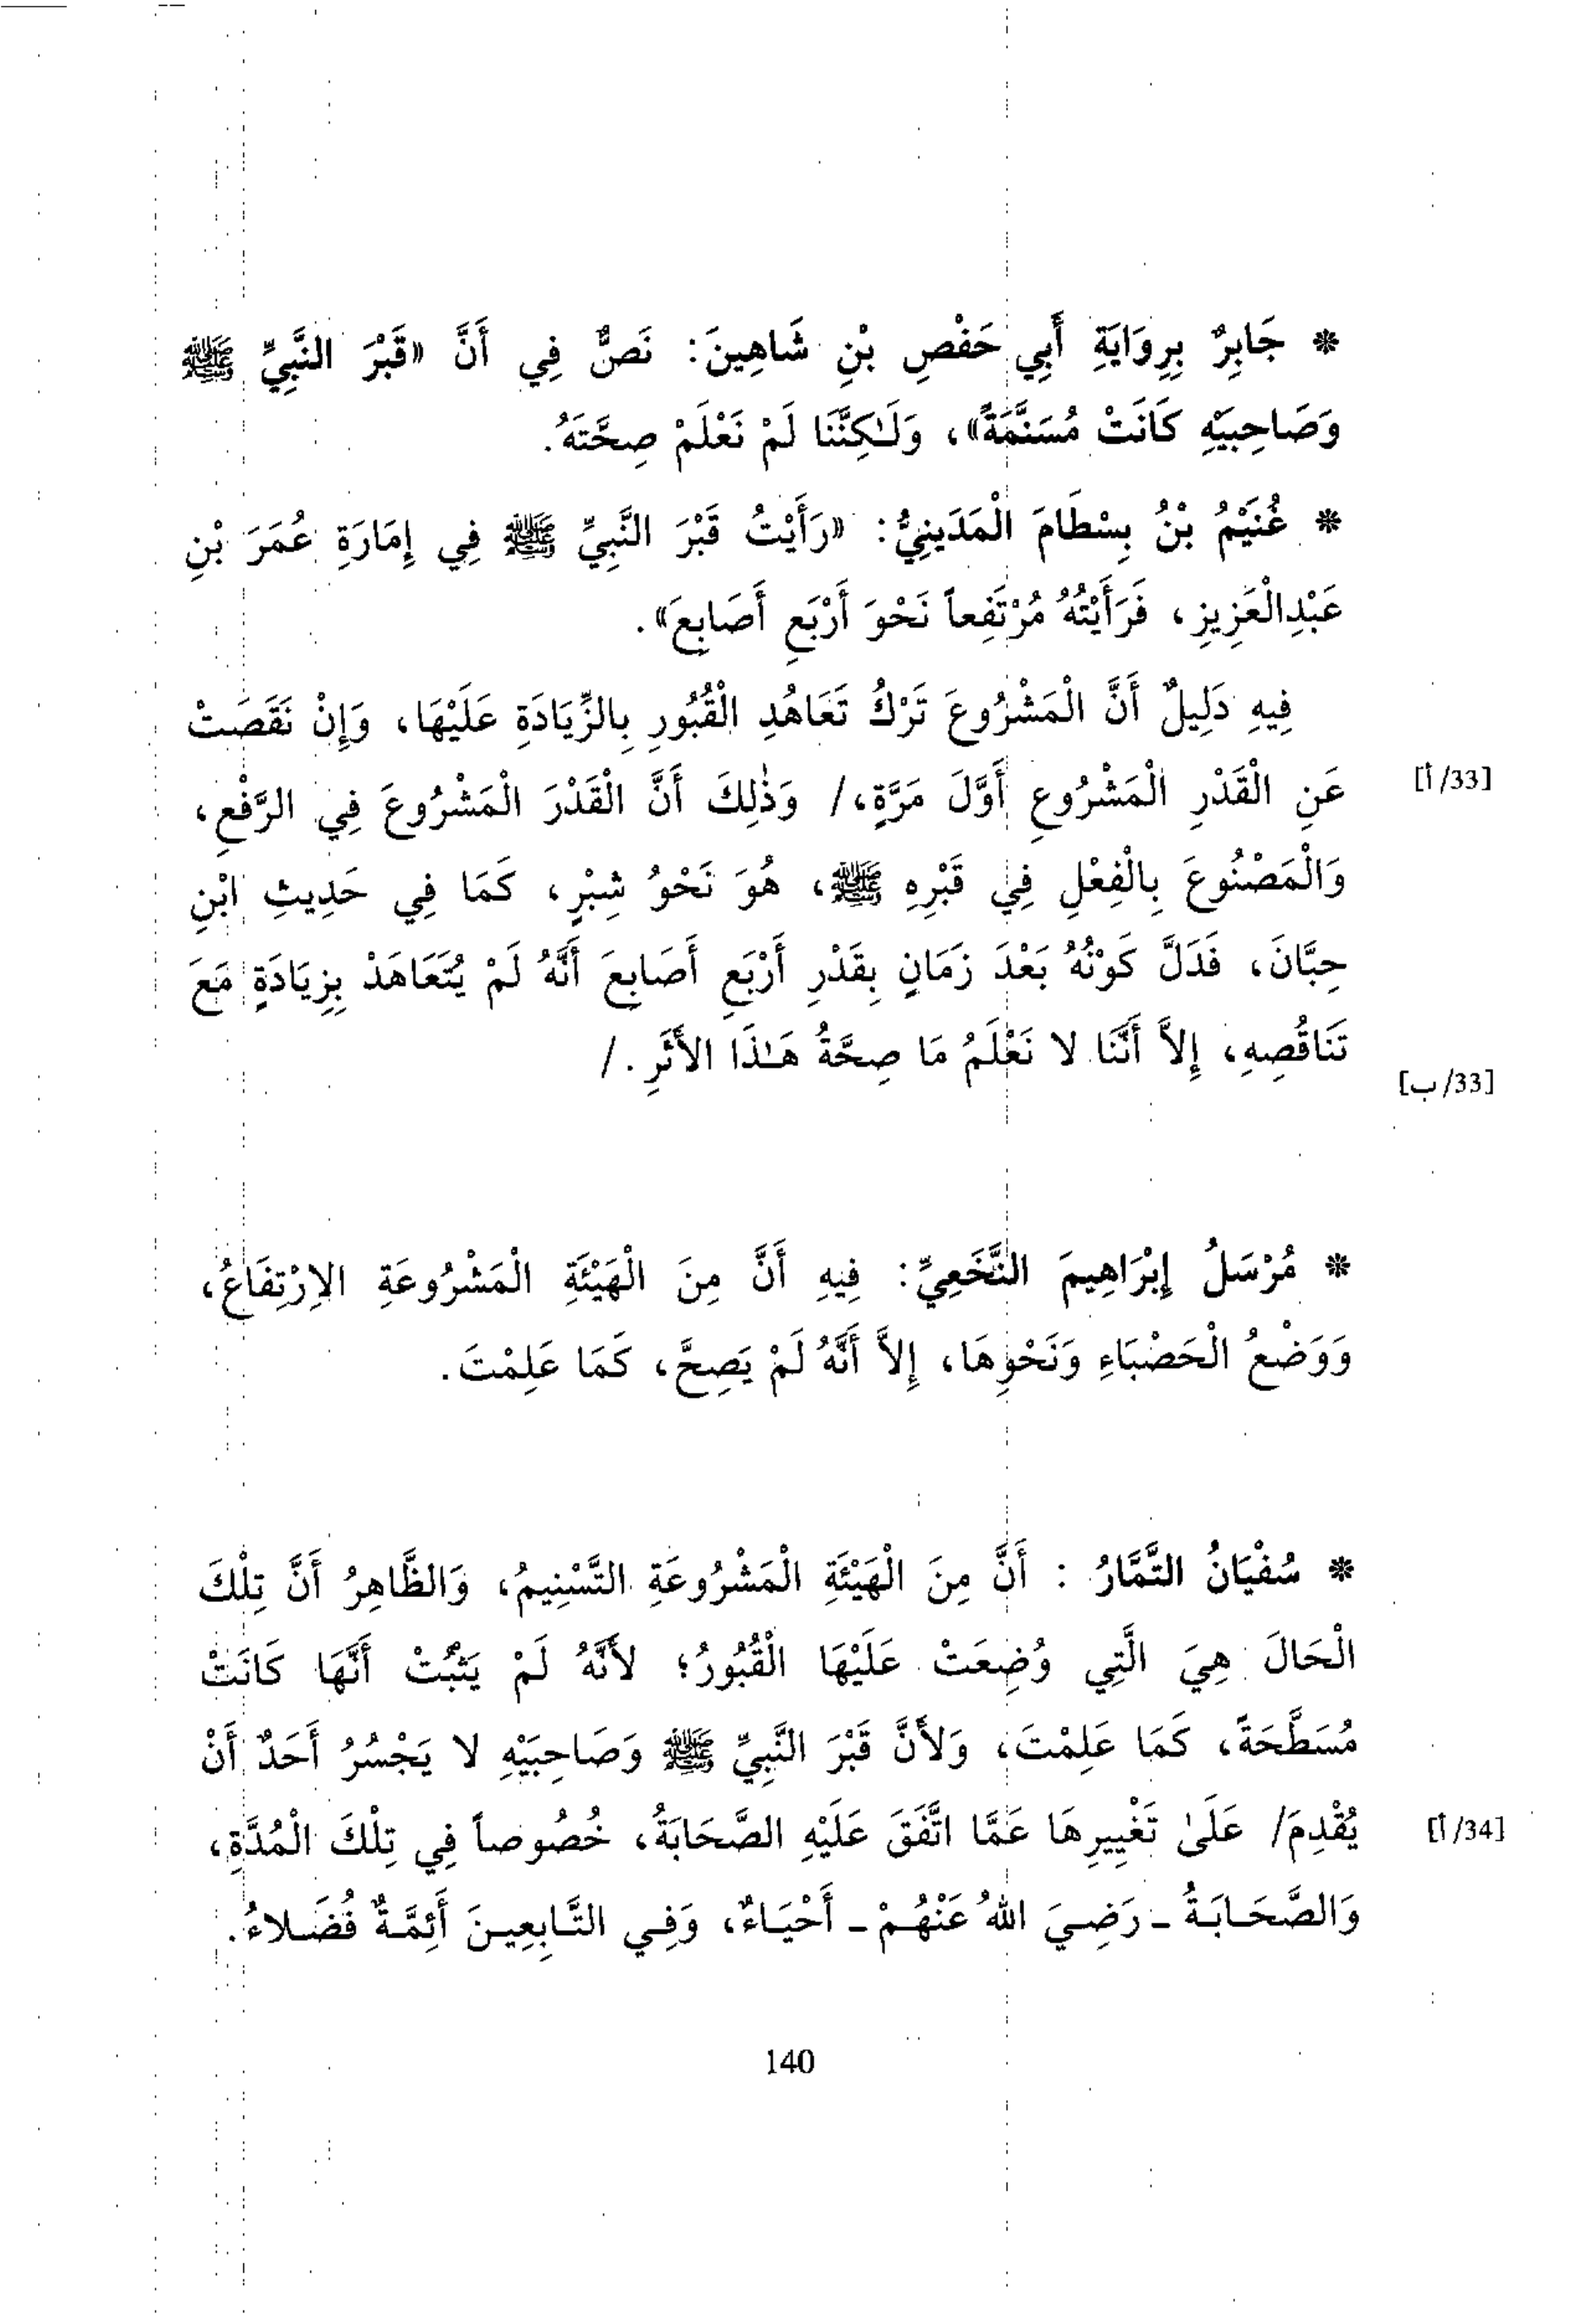 * جَابِرٌ بِرِوَايَةِ أَبِي حَفْصِ بْنِ شَاهِينَ: نَصٌّ فِي أَنَّ «قَبْرَ النَّبِيِّ ﷺ
وَصَاحِبَيْهِ كَانَتْ مُسَنَّمَةً»، وَلَـٰكِنَّنَا لَمْ نَعْلَمْ صِحَّتَهُ.
* غُنَيْمُ بْنُ بِسْطَامَ الْمَدَينِيُّ: «رَأَيْتُ قَبْرَ النَّبِيِّ ﷺ فِي إِمَارَةِ عُمَرَ بْنِ
عَبْدِالْعَزِيزِ، فَرَأَيْتُهُ مُرْتَفِعاً نَحْوَ أَرْبَعِ أَصَابِعَ».
فِيهِ دَلِيلٌ أَنَّ الْمَشْرُوعَ تَرْكُ تَعَاهُدِ الْقُبُورِ بِالزِّيَادَةِ عَلَيْهَا، وَإِنْ نَقَصَتْ
عَنِ الْقَدْرِ الْمَشْرُوعِ أَوَّلَ مَرَّةٍ،/ وَذٰلِكَ أَنَّ الْقَدْرَ الْمَشْرُوعَ فِي الرَّفْعِ، [33/أ]
وَالْمَصْنُوعَ بِالْفِعْلِ فِي قَبْرِهِ ﷺ، هُوَ نَحْوُ شِبْرٍ، كَمَا فِي حَدِيثِ ابْنِ
حِبَّانَ، فَدَلَّ كَوْنُهُ بَعْدَ زَمَانٍ بِقَدْرِ أَرْبَعِ أَصَابِعَ أَنَّهُ لَمْ يُتَعَاهَدْ بِزِيَادَةٍ مَعَ
تَنَاقُصِهِ، إِلاَّ أَنَّنَا لا نَعْلَمُ مَا صِحَّةُ هَـٰذَا الأَثَرِ. / [33/ب]
* مُرْسَلُ إِبْرَاهِيمَ النَّخَعِيِّ: فِيهِ أَنَّ مِنَ الْهَيْئَةِ الْمَشْرُوعَةِ الاِرْتِفَاعُ،
وَوَضْعُ الْحَصْبَاءِ وَنَحْوِهَا، إِلاَّ أَنَّهُ لَمْ يَصِحَّ، كَمَا عَلِمْتَ.
* سُفْيَانُ التَّمَّارُ : أَنَّ مِنَ الْهَيْئَةِ الْمَشْرُوعَةِ التَّسْنِيمُ، وَالظَّاهِرُ أَنَّ تِلْكَ
الْحَالَ هِيَ الَّتِي وُضِعَتْ عَلَيْهَا الْقُبُورُ؛ لأَنَّهُ لَمْ يَثْبُتْ أَنَّهَا كَانَتْ
مُسَطَّحَةً، كَمَا عَلِمْتَ، وَلأَنَّ قَبْرَ النَّبِيِّ ﷺ وَصَاحِبَيْهِ لا يَجْسُرُ أَحَدٌ أَنْ
يُقْدِمَ/ عَلَىٰ تَغْيِيرِهَا عَمَّا اتَّفَقَ عَلَيْهِ الصَّحَابَةُ، خُصُوصاً فِي تِلْكَ الْمُدَّةِ، [34/أ]
وَالصَّحَابَةُ - رَضِيَ اللهُ عَنْهُمْ - أَحْيَاءٌ، وَفِي التَّابِعِينَ أَئِمَّةٌ فُضَلاءُ.
140